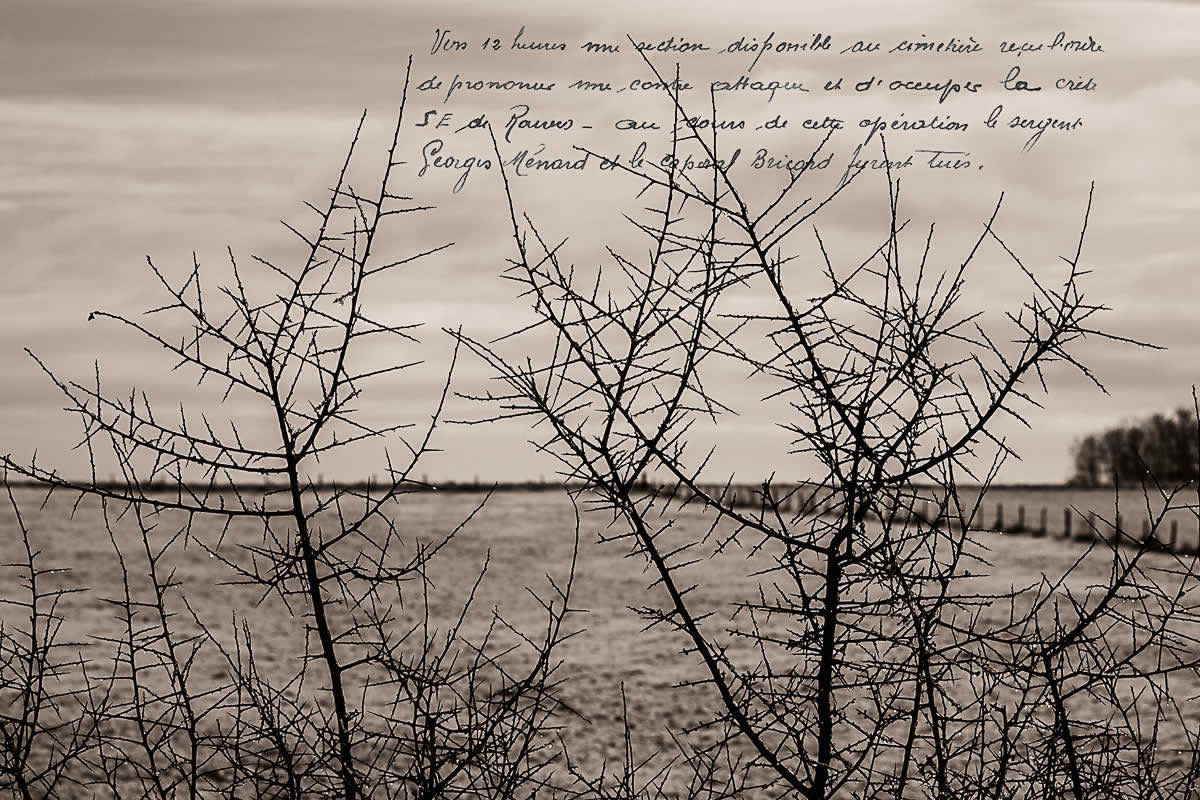 Vers 12 heures une section disponible au cimetière reçu l'ordre
de prononcer une contre attaque et d'occuper la crête
SE de Rauves - au cours de cette opération le sergent
Georges Ménard et le caporal Bricard furent tués.